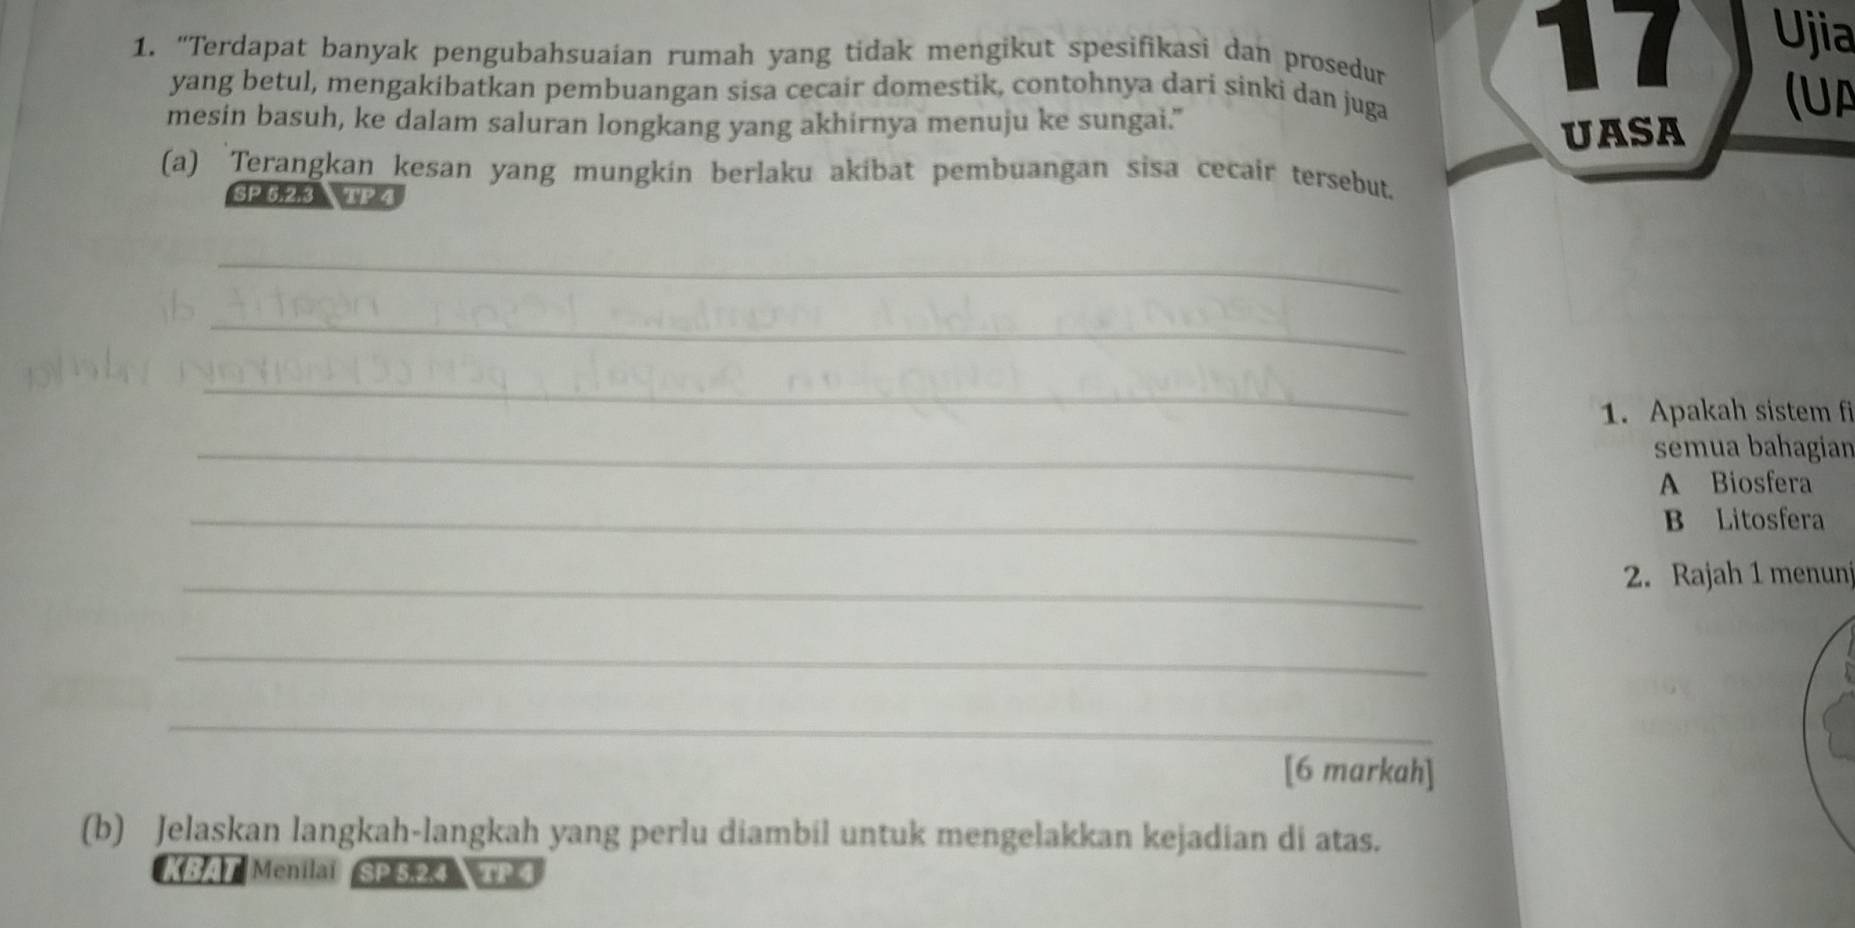 1. "Terdapat banyak pengubahsuaian rumah yang tidak mengikut spesifikasi dan prosedur
yang betul, mengakibatkan pembuangan sisa cecair domestik, contohnya dari sinki dan juga
mesin basuh, ke dalam saluran longkang yang akhirnya menuju ke sungai."
(a) Terangkan kesan yang mungkin berlaku akibat pembuangan sisa cecair tersebut.
SP 5.2.3 TP 4
[6 markah]
(b) Jelaskan langkah-langkah yang perlu diambil untuk mengelakkan kejadian di atas.
KBAT Menilai SP 5.2.4 TP 4
17
UASA
Ujia
(UA
1. Apakah sistem fi
semua bahagian
A Biosfera
B Litosfera
2. Rajah 1 menunj